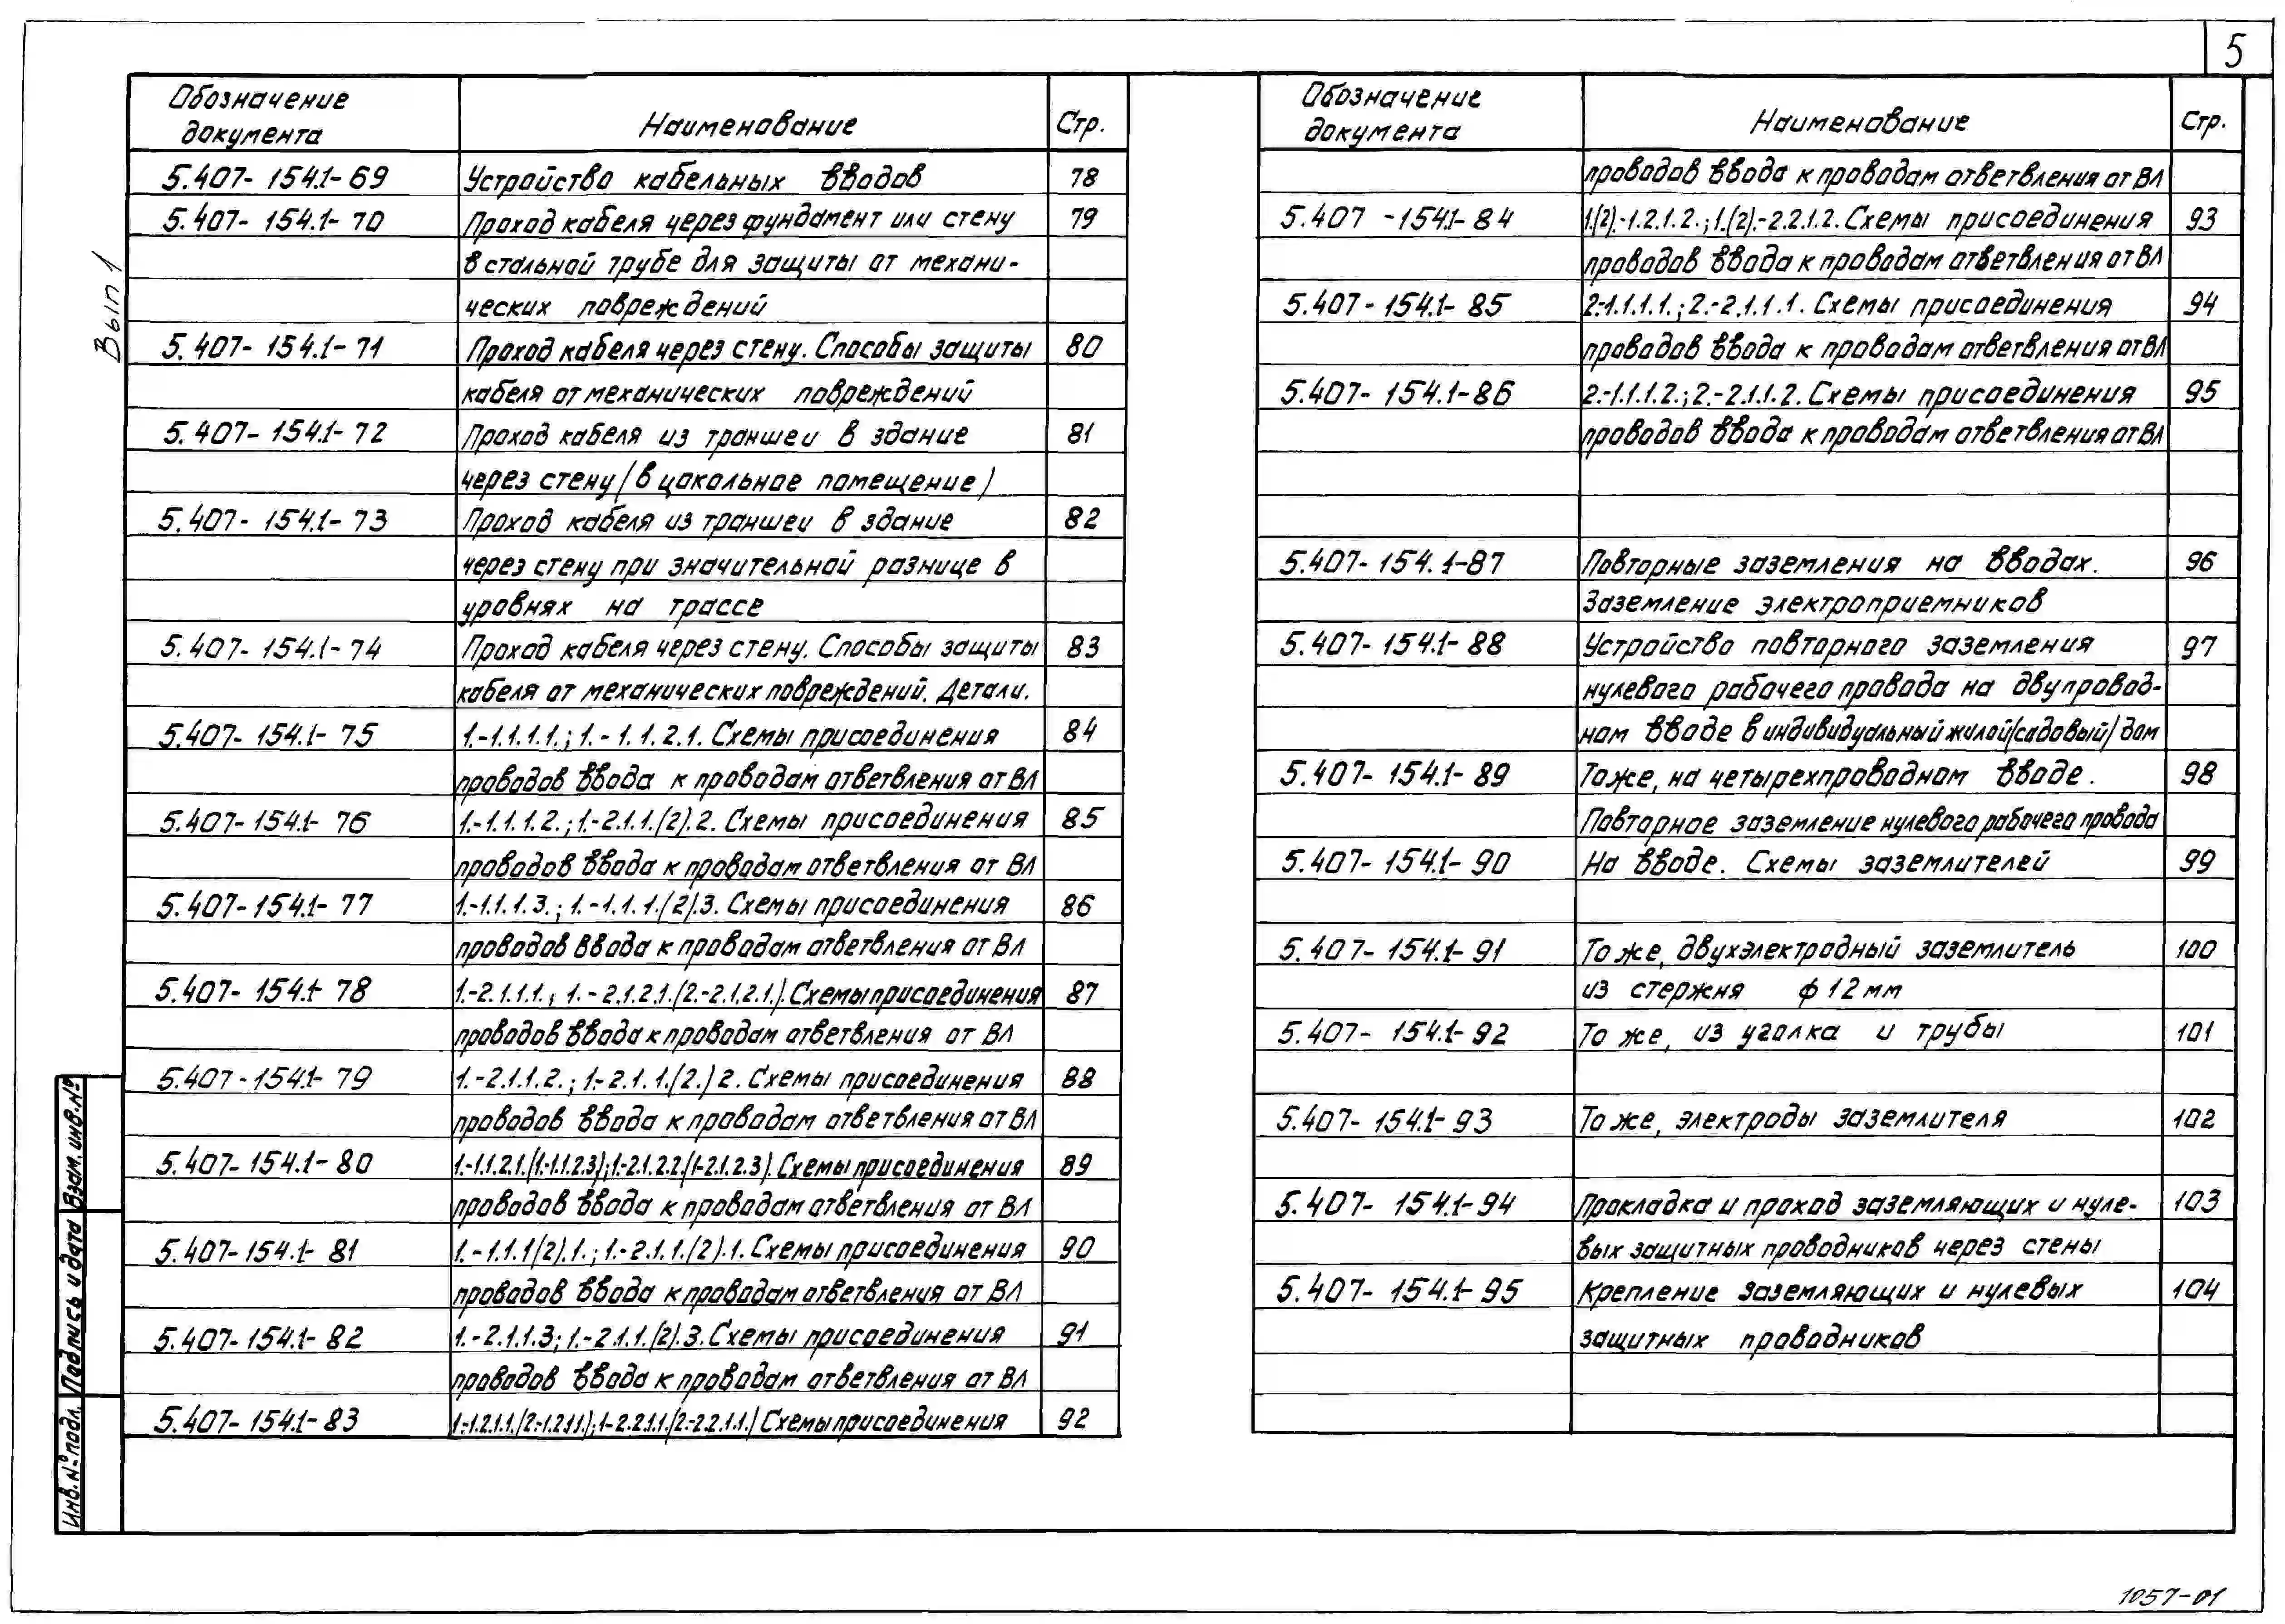 5
Вып 1
Обозначение документа Наименование Стр.
5.407-154.1-69 Устройство кабельных вводов 78
5.407-154.1-70 Проход кабеля через фундамент или стену 79
в стальной трубе для защиты от механи-
ческих повреждений
5.407-154.1-71 Проход кабеля через стену. Способы защиты 80
кабеля от механических повреждений
5.407-154.1-72 Проход кабеля из траншеи в здание 81
через стену (в цокольное помещение)
5.407-154.1-73 Проход кабеля из траншеи в здание 82
через стену при значительной разнице в
уровнях на трассе
5.407-154.1-74 Проход кабеля через стену. Способы защиты 83
кабеля от механических повреждений. Детали.
5.407-154.1-75 1.-1.1.1.1.; 1.-1.1.2.1. Схемы присоединения 84
проводов ввода к проводам ответвления от ВЛ
5.407-154.1-76 1.-1.1.1.2.; 1.-2.1.1.(2).2. Схемы присоединения 85
проводов ввода к проводам ответвления от ВЛ
5.407-154.1-77 1.-1.1.1.3.; 1.-1.1.1.(2).3. Схемы присоединения 86
проводов ввода к проводам ответвления от ВЛ
5.407-154.1-78 1.-2.1.1.1.; 1.-2.1.2.1.(2.-2.1.2.1.). Схемы присоединения 87
проводов ввода к проводам ответвления от ВЛ
5.407-154.1-79 1.-2.1.1.2.; 1.-2.1.1.(2.)2. Схемы присоединения 88
проводов ввода к проводам ответвления от ВЛ
5.407-154.1-80 1.-1.1.2.1.(1.-1.1.2.3);1.-2.1.2.2.(1-2.1.2.3). Схемы присоединения 89
проводов ввода к проводам ответвления от ВЛ
5.407-154.1-81 1.-1.1.1(2).1.; 1.-2.1.1.(2).1. Схемы присоединения 90
проводов ввода к проводам ответвления от ВЛ
5.407-154.1-82 1.-2.1.1.3; 1.-2.1.1.(2).3. Схемы присоединения 91
проводов ввода к проводам ответвления от ВЛ
5.407-154.1-83 1.-1.2.1.1.(2.-1.2.1.1.);1-2.2.1.1.(2.-2.2.1.1.) Схемы присоединения 92
Обозначение документа Наименование Стр.
проводов ввода к проводам ответвления от ВЛ
5.407-154.1-84 1.(2).-1.2.1.2.; 1.(2).-2.2.1.2. Схемы присоединения 93
проводов ввода к проводам ответвления от ВЛ
5.407-154.1-85 2.-1.1.1.1.; 2.-2.1.1.1. Схемы присоединения 94
проводов ввода к проводам ответвления от ВЛ
5.407-154.1-86 2.-1.1.1.2.; 2.-2.1.1.2. Схемы присоединения 95
проводов ввода к проводам ответвления от ВЛ
5.407-154.1-87 Повторные заземления на вводах. 96
Заземление электроприемников
5.407-154.1-88 Устройство повторного заземления 97
нулевого рабочего провода на двупровод-
ном вводе в индивидуальный жилой (садовый) дом
5.407-154.1-89 То же, на четырехпроводном вводе. 98
Повторное заземление нулевого рабочего провода
5.407-154.1-90 На вводе. Схемы заземлителей 99
5.407-154.1-91 То же, двухэлектродный заземлитель 100
из стержня ф 12 мм
5.407-154.1-92 То же, из уголка и трубы 101
5.407-154.1-93 То же, электроды заземлителя 102
5.407-154.1-94 Прокладка и проход заземляющих и нуле- 103
вых защитных проводников через стены
5.407-154.1-95 Крепление заземляющих и нулевых 104
защитных проводников
Взам. инв. №
Подпись и дата
Инв. № подл.
1057-01